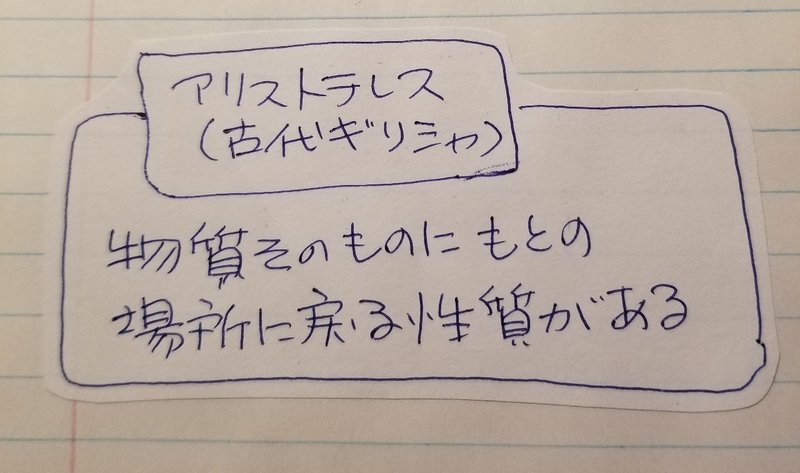 アリストテレス
(古代ギリシャ)
物質そのものにもとの
場所に戻る性質がある